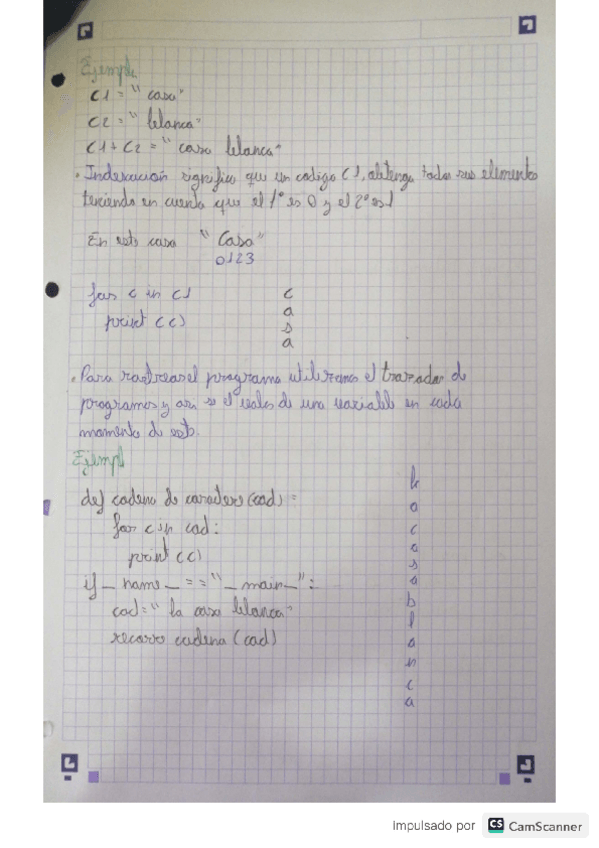 Ejemplo
C1 = "casa"
C2 = "blanca"
C1 + C2 = "casa blanca"
• Indexación significa que un codigo C1, obtenga todos sus elementos
teniendo en cuenta que el 1º es 0 y el 2º es 1
En este caso "Casa"
0123
for c in C1
print (c)
c
a
s
a
• Para rastrear el programa utilizamos el trazador de
programas y así se el valor de una variable en cada
momento de esto.
Ejempl
def cadena de caracteres (cad) =
for c in cad:
print (c)
if _ name _ = = "_ main _":
cad = "la casa blanca"
recorro cadena (cad)
l
a
c
a
s
a
b
l
a
n
c
a
Impulsado por CS CamScanner